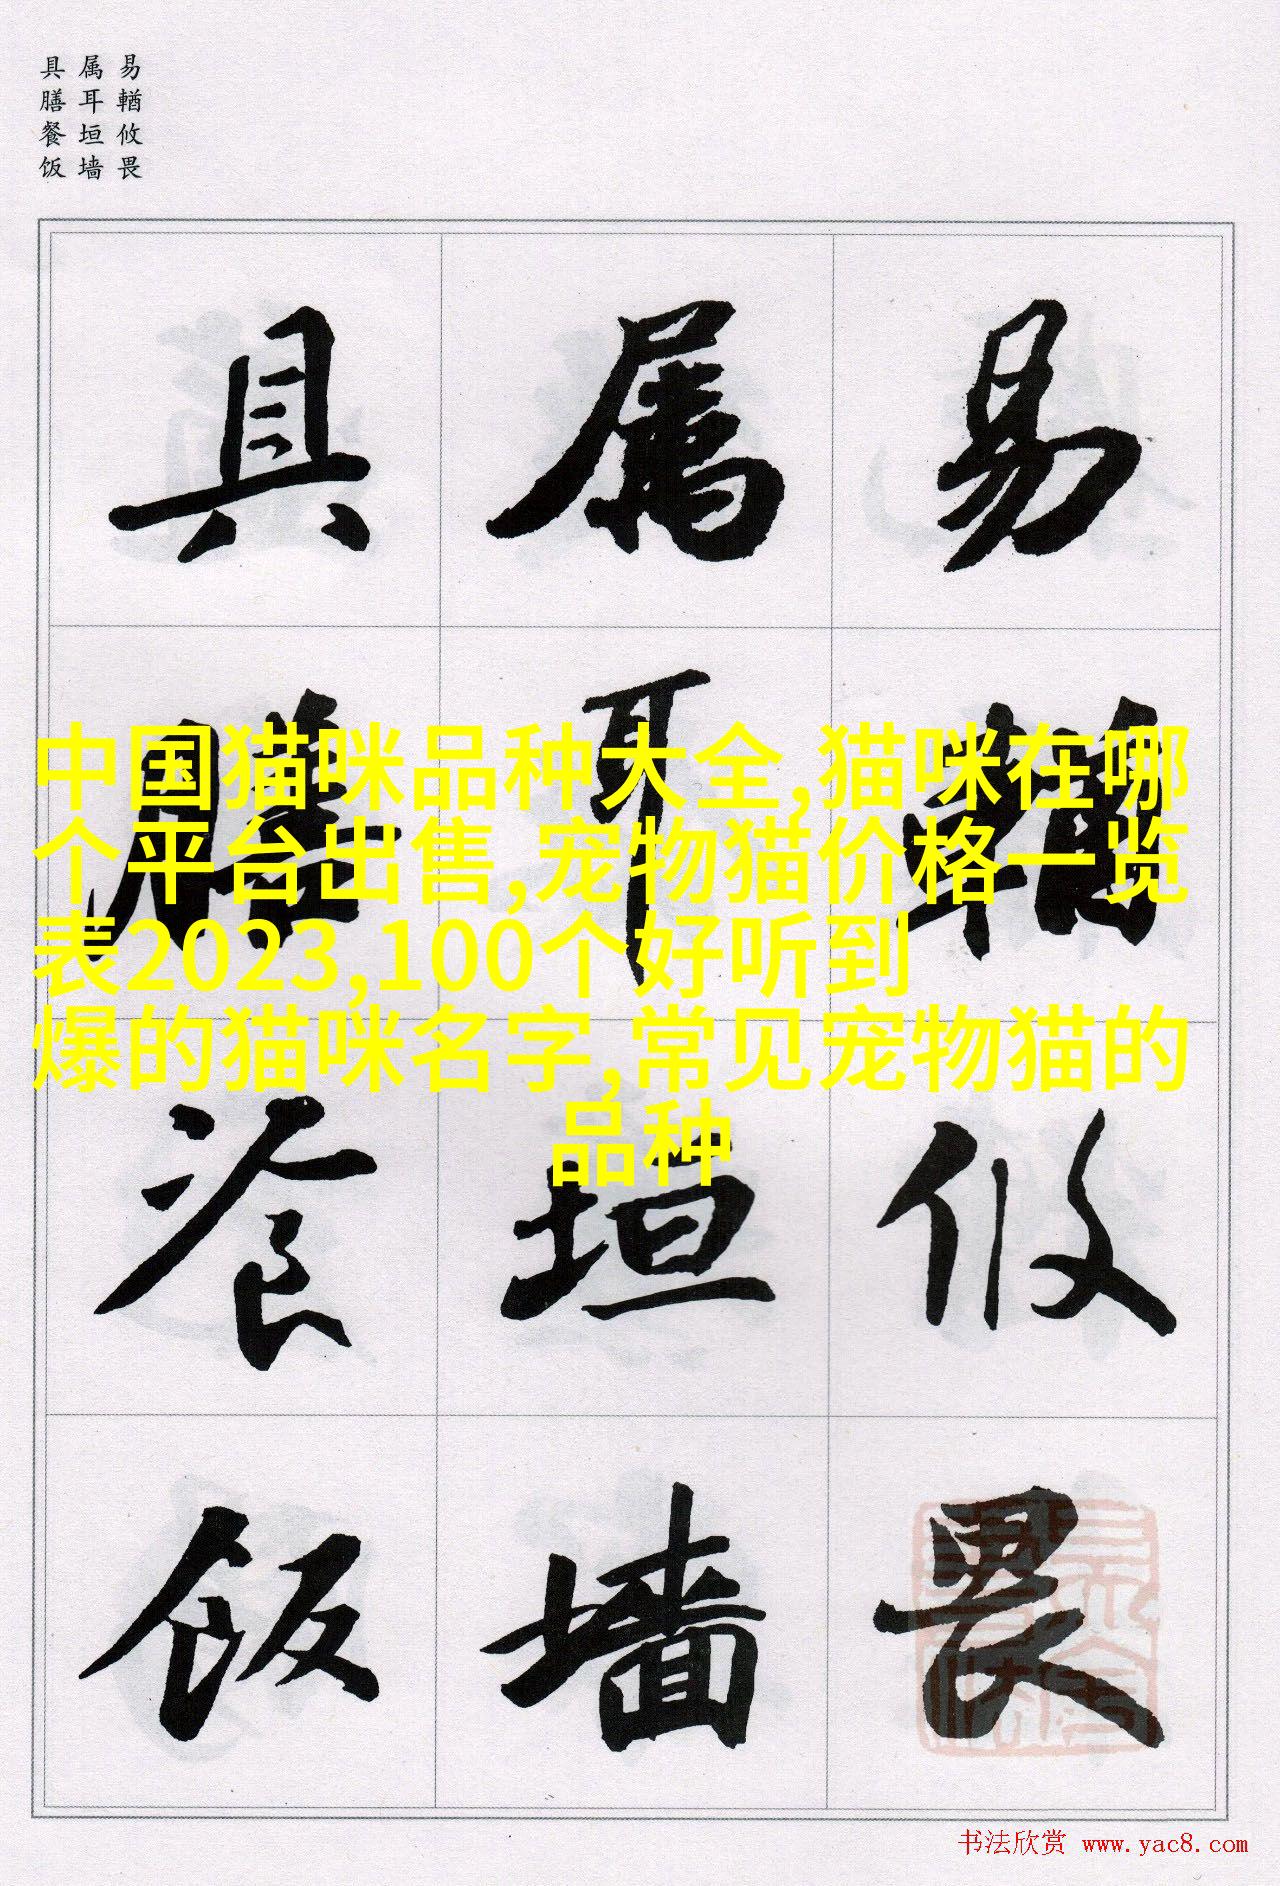 易輶攸畏
属耳垣墙
具膳餐饭
易輶攸畏
属耳垣墙
具膳飡饭
中国猫咪品种大全,猫咪在哪
个平台出售,宠物猫价格一览
表2023,100个好听到
爆的猫咪名字,常见宠物猫的
品种
书法欣赏 www.yac8.com